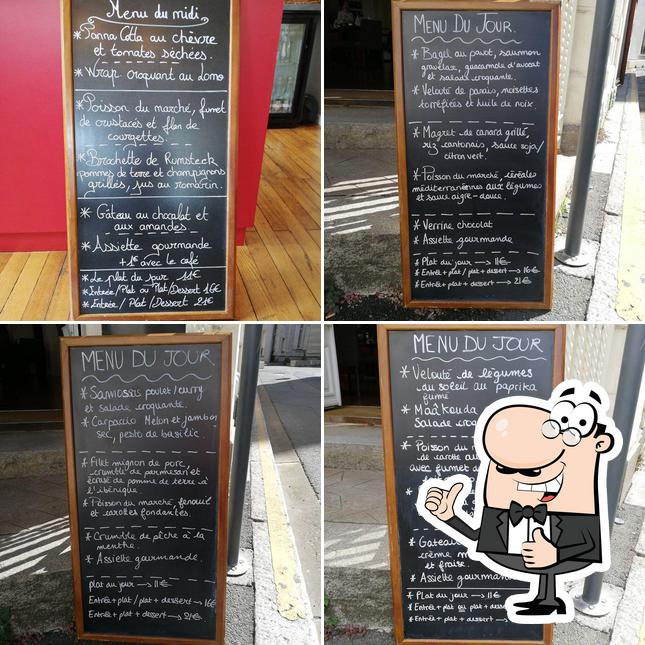 Menu du midi
* Panna Cotta au chèvre
et tomates séchées.
* Wrap croquant au Lomo
* Poisson du marché, fumet
de crustacés et flan de
courgettes.
* Brochette de Rumsteck
pommes de terre et champignons
grillés, jus au romarin.
* Gâteau au chocolat et
aux amandes
* Assiette gourmande
+1€ avec le café
* Le plat du jour 11€
* Entrée/Plat ou Plat/Dessert 16€
* Entrée / Plat / Dessert 21€
MENU DU JOUR.
* Bagel au pavot, saumon
gravelax, guacamole d'avocat
et salade croquante.
* Velouté de panais, noisettes
torréfiées et huile de noix.
* Magret de canard grillé,
riz cantonais, sauce soja/
citron vert.
* Poisson du marché, céréales
méditerranéennes aux légumes
et sauce aigre-douce.
* Verrine chocolat
* Assiette gourmande
* Plat du jour → 11€
* Entrée + plat / plat + dessert → 16€
* Entrée + plat + dessert → 21€
MENU DU JOUR
* Samossas poulet/curry
et salade croquante.
* Carpaccio Melon et jambon
sec, pesto de basilic.
* Filet mignon de porc,
crumble de parmesan et
écrasé de pomme de terre à
l'ibérique
* Poisson du marché, fenouil
et carottes fondantes.
* Crumble de pêche à la
menthe.
* Assiette gourmande
plat du jour → 11€
Entrée + plat / plat + dessert → 16€
Entrée + plat + dessert → 21€
MENU DU JOUR
* Velouté de légumes
du soleil au paprika
fumé
*
Salade
* Poisson du
de carotte au
avec fumet d
*
* Gateau
crème
et fraise.
* Assiette gourmand
* Plat du jour → 11€
* Entrée + plat ou plat + dess
* Entrée + plat + dessert →